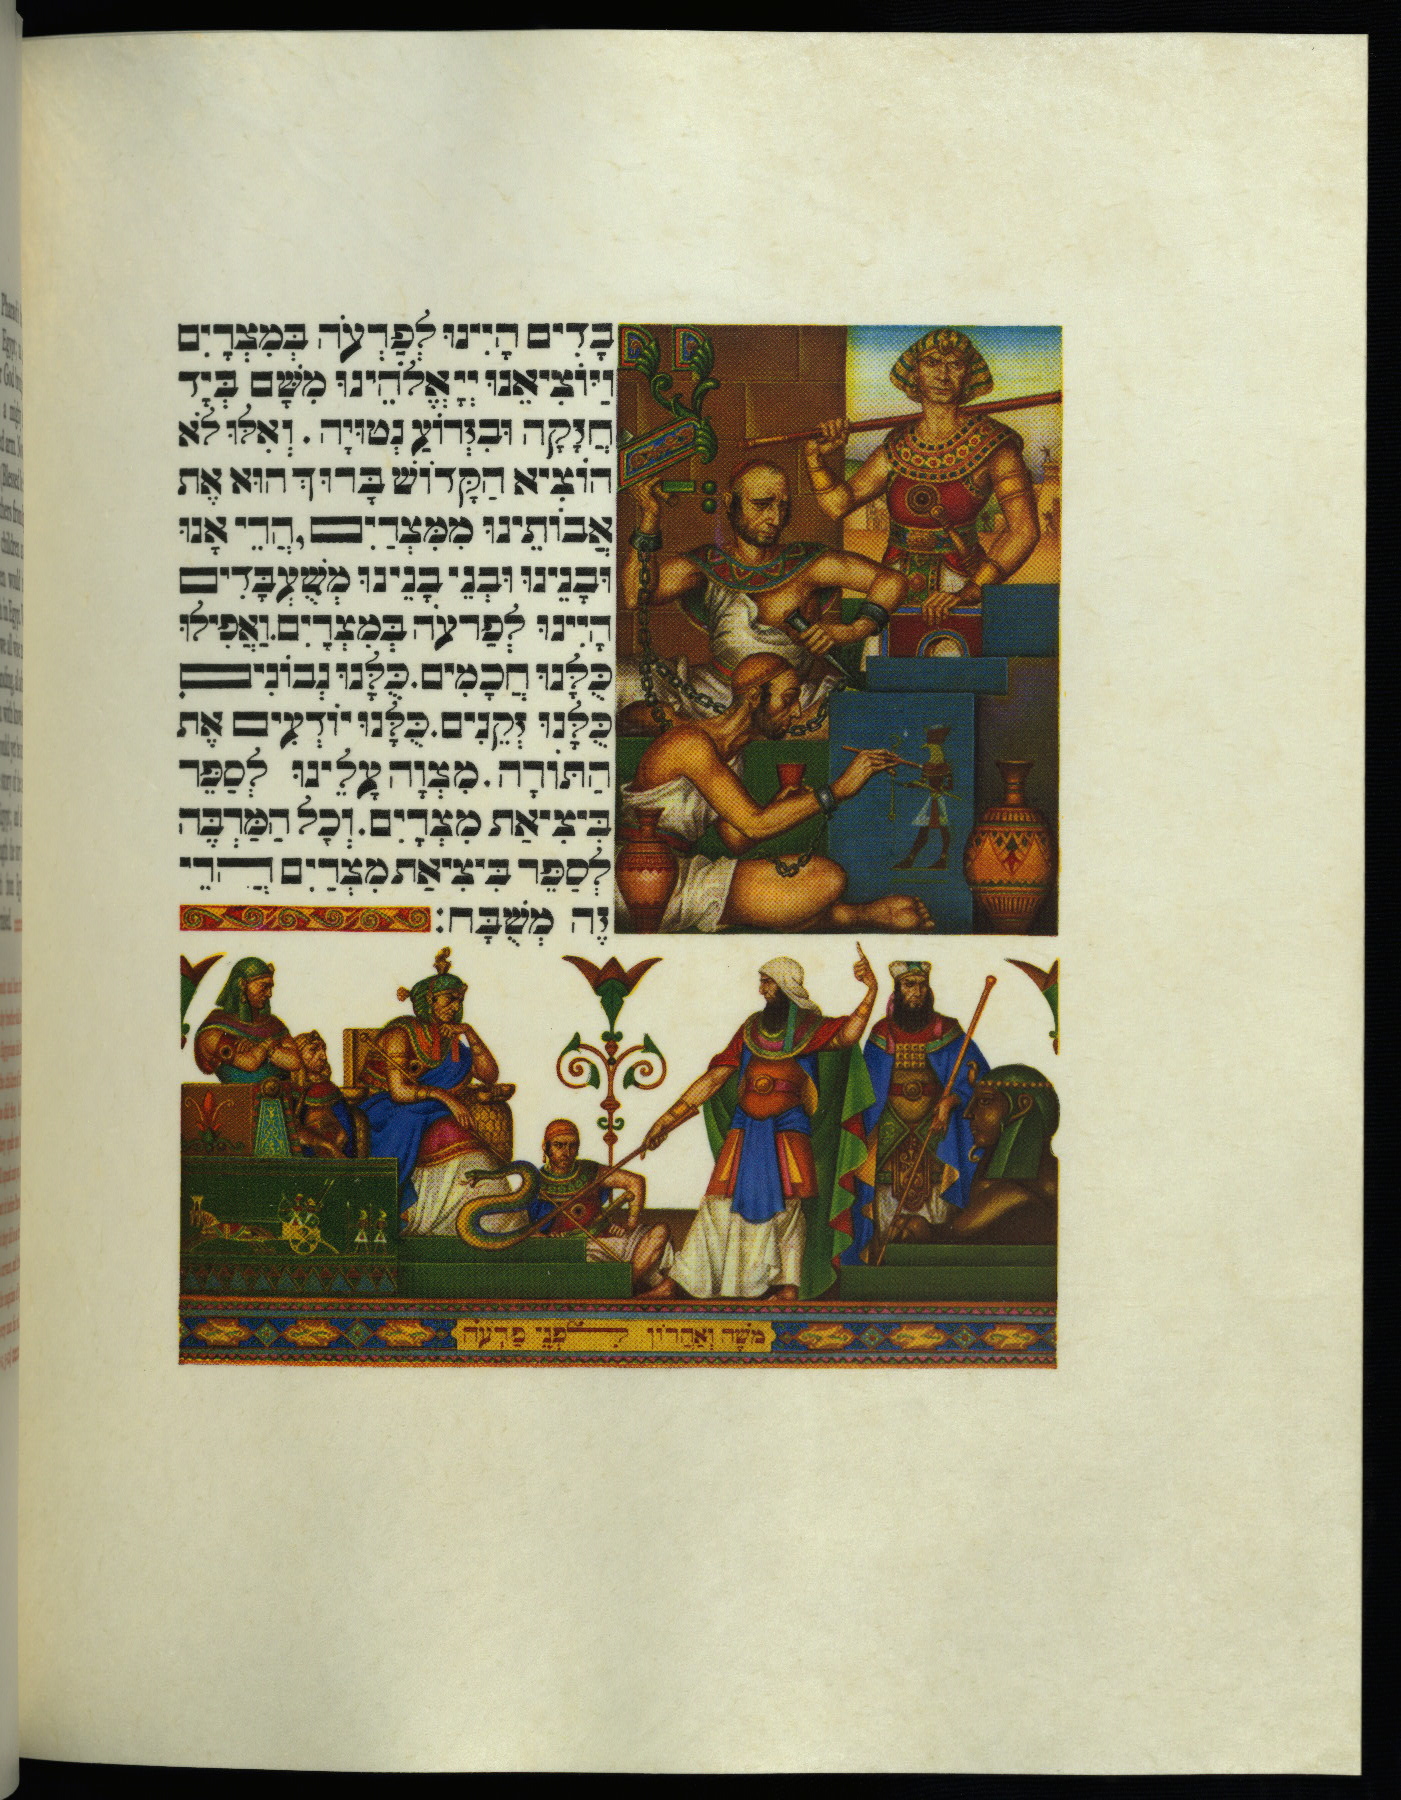 עֲבָדִים הָיִינוּ לְפַרְעֹה בְּמִצְרָיִם
וַיּוֹצִיאֵנוּ יְיָ אֱלֹהֵינוּ מִשָּׁם בְּיָד
חֲזָקָה וּבִזְרוֹעַ נְטוּיָה. וְאִלּוּ לֹא
הוֹצִיא הַקָּדוֹשׁ בָּרוּךְ הוּא אֶת
אֲבוֹתֵינוּ מִמִּצְרַיִם, הֲרֵי אָנוּ
וּבָנֵינוּ וּבְנֵי בָנֵינוּ מְשֻׁעְבָּדִים
הָיִינוּ לְפַרְעֹה בְּמִצְרָיִם. וַאֲפִילוּ
כֻּלָּנוּ חֲכָמִים. כֻּלָּנוּ נְבוֹנִים
כֻּלָּנוּ זְקֵנִים. כֻּלָּנוּ יוֹדְעִים אֶת
הַתּוֹרָה. מִצְוָה עָלֵינוּ לְסַפֵּר
בִּיצִיאַת מִצְרָיִם. וְכָל הַמַּרְבֶּה
לְסַפֵּר בִּיצִיאַת מִצְרַיִם הֲרֵי
זֶה מְשֻׁבָּח:
מֹשֶׁה וְאַהֲרוֹן לִפְנֵי פַּרְעֹה